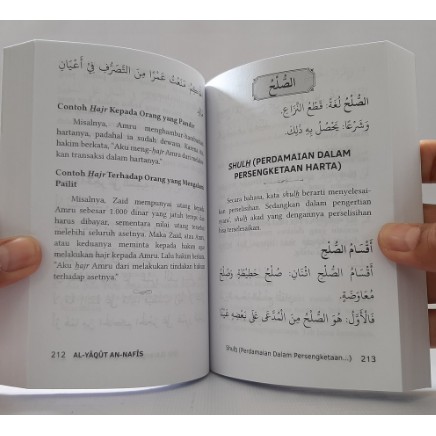 مَنَعْتُ عَمْرًا مِنَ التَّصَرُّفِ فِي أَعْيَانِ
Contoh Ḥajr Kepada Orang yang
Misalnya, Amru menghambur-hamburkan
hartanya, padahal ia sudah dewasa. Karena itu,
hakim berkata, "Aku meng-ḥajr Amru dari melaku-
kan transaksi dalam hartanya."
Contoh Ḥajr Terhadap Orang yang Mengalami
Pailit
Misalnya, Zaid mempunyai utang kepada
Amru sebesar 1.000 dinar yang jatuh tempo dan
harus dibayar, sementara nilai utang tersebut
melebihi seluruh asetnya. Maka Zaid, atau Amru
atau keduanya meminta kepada hakim agar
melakukan ḥajr kepada Amru. Lalu hakim berkata,
"Aku ḥajr Amru dari melakukan tindakan dalam
terhadap asetnya."
212 AL-YÂQÛT AN-NAFÎS
الصُّلْحُ
الصُّلْحُ لُغَةً: قَطْعُ النِّزَاعِ.
وَشَرْعًا: يَحْصُلُ بِهِ ذَلِكَ.
SHULḤ (PERDAMAIAN DALAM
PERSENGKETAAN HARTA)
Secara bahasa, kata shulḥ berarti menyelesai-
kan perselisihan. Sedangkan dalam pengertian
syar'i, shulḥ akad yang dengannya perselisihan
terselesaikan.
أَقْسَامُ الصُّلْحِ
أَقْسَامُ الصُّلْحِ اثْنَانِ: صُلْحُ حَطِيطَةٍ وَصُلْحُ
مُعَاوَضَةٍ.
فَالْأَوَّلُ: هُوَ الصُّلْحُ مِنَ الْمُدَّعَى عَلَى بَعْضِهِ عَيْنًا
Shulḥ (Perdamaian Dalam Persengketaan...) 213